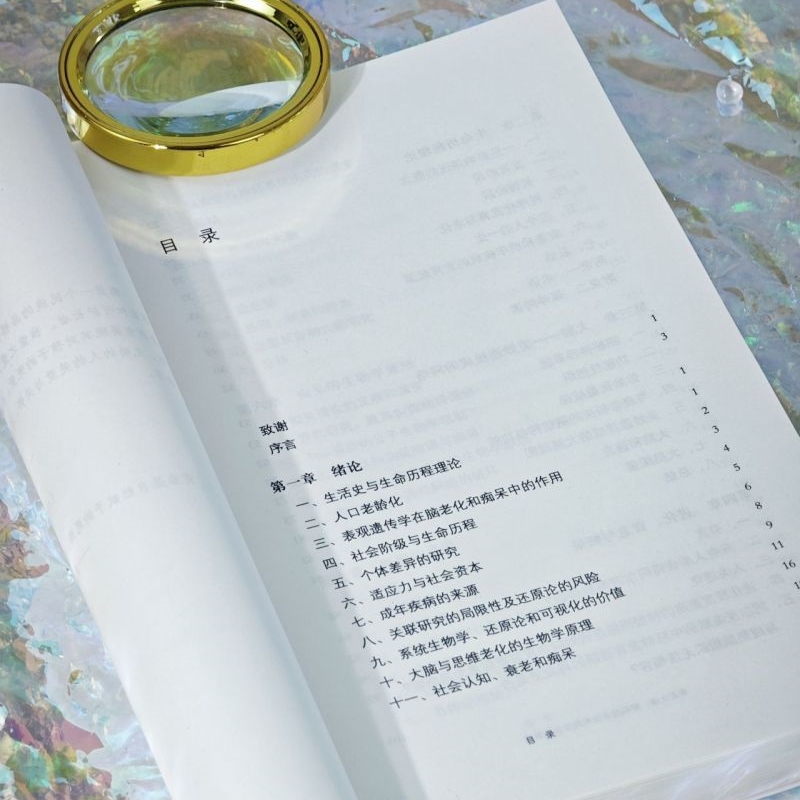 目 录
致谢 1
序言 3
第一章 绪论 1
一、生活史与生命历程理论 1
二、人口老龄化 2
三、表观遗传学在脑老化和痴呆中的作用 3
四、社会阶级与生命历程 4
五、个体差异的研究 5
六、适应力与社会资本 6
七、成年疾病的来源 8
八、关联研究的局限性及还原论的风险 9
九、系统生物学、还原论和可视化的价值 11
十、大脑与思维老化的生物学原理 16
十一、社会认知、衰老和痴呆
目 录